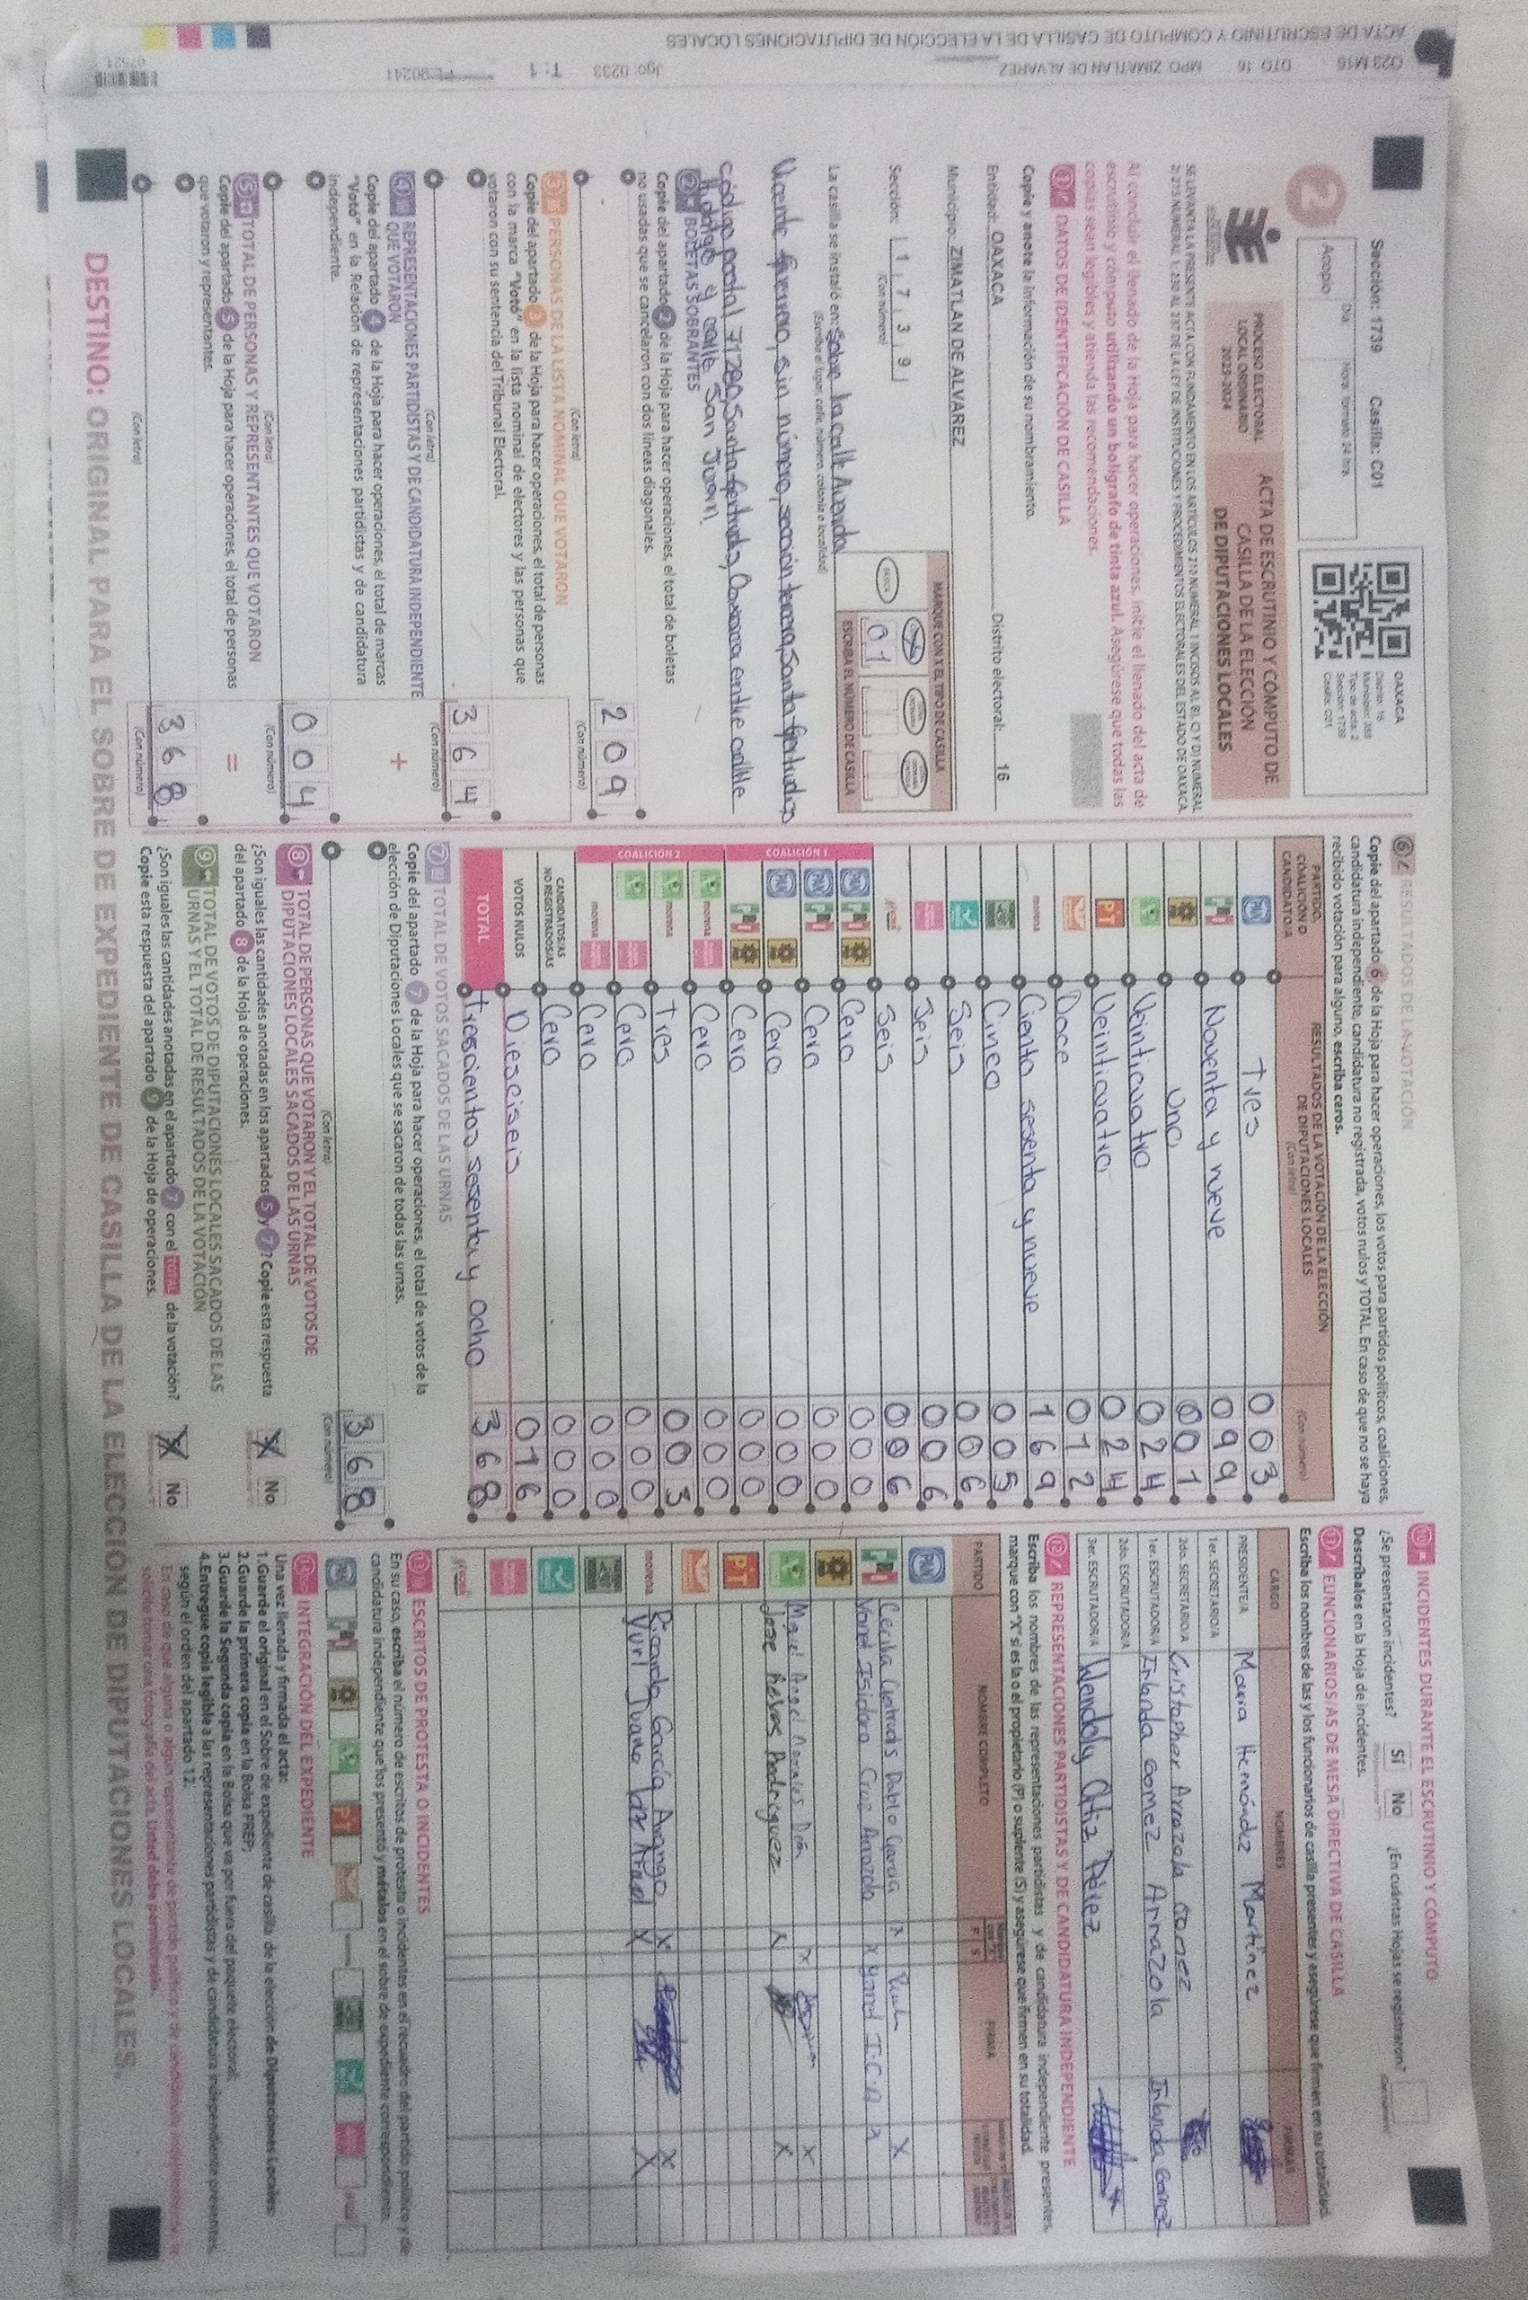 Sección: 1739 Casilla: C01
Acopio
Día
Hora, formato 24 hrs.
OAXACA
Distrito: 16
Tipo de acta: 2
Sección: 1739
Casilla: C01
2
PROCESO ELECTORAL
LOCAL ORDINARIO
2023-2024
ACTA DE ESCRUTINIO Y CÓMPUTO DE
CASILLA DE LA ELECCIÓN
DE DIPUTACIONES LOCALES
SE LEVANTA LA PRESENTE ACTA CON FUNDAMENTO EN LOS ARTÍCULOS 210 NUMERAL 1 INCISOS A), B), C) Y D) NUMERAL
Al concluir el llenado de la Hoja para hacer operaciones, inicie el llenado del acta de
escrutinio y cómputo utilizando un bolígrafo de tinta azul. Asegúrese que todas las
copias sean legibles y atienda las recomendaciones.
1 DATOS DE IDENTIFICACIÓN DE CASILLA
Copie y anote la información de su nombramiento.
Entidad: OAXACA Distrito electoral: 16
Municipio: ZIMATLAN DE ALVAREZ
Sección: 1 7 3 9
(Con número)
MARQUE CON X EL TIPO DE CASILLA
BÁSICA
ESCRIBA EL NÚMERO DE CASILLA
01
La casilla se instaló en: Sobre la calle Avenida
(Escriba el lugar, calle, número, colonia o localidad)
Vicente Guerrero, sin número, sección tercera, Santa Gertrudis
código postal 71280, Santa Gertrudis, Oaxaca entre calle
Hidalgo y calle San Juan.
2 BOLETAS SOBRANTES
Copie del apartado 2 de la Hoja para hacer operaciones, el total de boletas
no usadas que se cancelaron con dos líneas diagonales.
209
(Con letra) (Con número)
3 PERSONAS DE LA LISTA NOMINAL QUE VOTARON
Copie del apartado 3 de la Hoja para hacer operaciones, el total de personas
con la marca "Votó" en la lista nominal de electores y las personas que
votaron con su sentencia del Tribunal Electoral.
364
(Con letra) (Con número)
4 REPRESENTACIONES PARTIDISTAS Y DE CANDIDATURA INDEPENDIENTE
QUE VOTARON
Copie del apartado 4 de la Hoja para hacer operaciones, el total de marcas
"Votó" en la Relación de representaciones partidistas y de candidatura
independiente.
+
004
(Con letra) (Con número)
5 TOTAL DE PERSONAS Y REPRESENTANTES QUE VOTARON
Copie del apartado 5 de la Hoja para hacer operaciones, el total de personas
que votaron y representantes.
=
368
(Con letra) (Con número)
6 RESULTADOS DE LA VOTACIÓN
Copie del apartado 6 de la Hoja para hacer operaciones, los votos para partidos políticos, coaliciones,
candidatura independiente, candidatura no registrada, votos nulos y TOTAL. En caso de que no se haya
recibido votación para alguno, escriba ceros.
PARTIDO, COALICIÓN O CANDIDATO/A
RESULTADOS DE LA VOTACIÓN DE LA ELECCIÓN DE DIPUTACIONES LOCALES
(Con letra) (Con número)
PAN Tres 003
PRI Noventa y nueve 099
PRD Uno 001
Veinticuatro 024
PT Veinticuatro 024
Doce 012
morena Ciento sesenta y nueve 169
Cinco 005
Seis 006
Seis 006
Seis 006
COALICIÓN 1
Cero 000
Cero 000
Cero 000
Cero 000
COALICIÓN 2
morena Cero 000
morena Tres 003
Cero 000
morena Cero 000
CANDIDATOS/AS NO REGISTRADOS/AS Cero 000
VOTOS NULOS Dieseiseis 016
TOTAL trescientos sesenta y ocho 368
7 TOTAL DE VOTOS SACADOS DE LAS URNAS
Copie del apartado 7 de la Hoja para hacer operaciones, el total de votos de la
elección de Diputaciones Locales que se sacaron de todas las urnas.
368
(Con letra) (Con número)
8 TOTAL DE PERSONAS QUE VOTARON Y EL TOTAL DE VOTOS DE
DIPUTACIONES LOCALES SACADOS DE LAS URNAS
¿Son iguales las cantidades anotadas en los apartados 5 y 7? Copie esta respuesta
del apartado 8 de la Hoja de operaciones.
No
9 TOTAL DE VOTOS DE DIPUTACIONES LOCALES SACADOS DE LAS
URNAS Y EL TOTAL DE RESULTADOS DE LA VOTACIÓN
¿Son iguales las cantidades anotadas en el apartado 7 con el TOTAL de la votación?
Copie esta respuesta del apartado 9 de la Hoja de operaciones.
No
10 INCIDENTES DURANTE EL ESCRUTINIO Y CÓMPUTO
¿Se presentaron incidentes? Sí No ¿En cuántas Hojas se registraron?
Descríbalos en la Hoja de incidentes.
11 FUNCIONARIOS/AS DE MESA DIRECTIVA DE CASILLA
Escriba los nombres de las y los funcionarios de casilla presentes y asegúrese que firmen en su totalidad.
CARGO NOMBRES FIRMAS
PRESIDENTE/A María Hernández Martínez
1er. SECRETARIO/A
2do. SECRETARIO/A Cristopher Arrazola Gomez
1er. ESCRUTADOR/A Irlanda Gomez Arrazola Irlanda Gomez
2do. ESCRUTADOR/A
3er. ESCRUTADOR/A Wendoly Ortiz Pérez
12 REPRESENTACIONES PARTIDISTAS Y DE CANDIDATURA INDEPENDIENTE
Escriba los nombres de las representaciones partidistas y de candidatura independiente presentes,
marque con "X" si es la o el propietario (P) o suplente (S) y asegúrese que firmen en su totalidad.
PARTIDO NOMBRE COMPLETO P S FIRMA
PAN
PRI Cecilia Pablo García X X
Yanet Isidora Cruz Arrazola X
PRD
Miguel Angel Morales X X
Jose Rodriguez X X
PT
morena Ricardo García Arango X X
Yuri X X
13 ESCRITOS DE PROTESTA O INCIDENTES
En su caso, escriba el número de escritos de protesta o incidentes en el recuadro del partido político y de
candidatura independiente que los presentó y métalos en el sobre de expediente correspondiente.
14 INTEGRACIÓN DEL EXPEDIENTE
Una vez llenada y firmada el acta:
1.Guarde el original en el Sobre de expediente de casilla de la elección de Diputaciones Locales;
2.Guarde la primera copia en la Bolsa PREP;
3.Guarde la Segunda copia en la Bolsa que va por fuera del paquete electoral;
4.Entregue copia legible a las representaciones partidistas y de candidatura independiente presentes,
según el orden del apartado 12.
En caso de que alguna o algún representante de partido político y de candidatura independiente
solicite tomar una fotografía del acta, Usted debe permitírselo.
DESTINO: ORIGINAL PARA EL SOBRE DE EXPEDIENTE DE CASILLA DE LA ELECCIÓN DE DIPUTACIONES LOCALES.
O23 M16 DTO 16 MPO. ZIMATLAN DE ALVAREZ Jgo: 0233 T: 1
ACTA DE ESCRUTINIO Y CÓMPUTO DE CASILLA DE LA ELECCIÓN DE DIPUTACIONES LOCALES